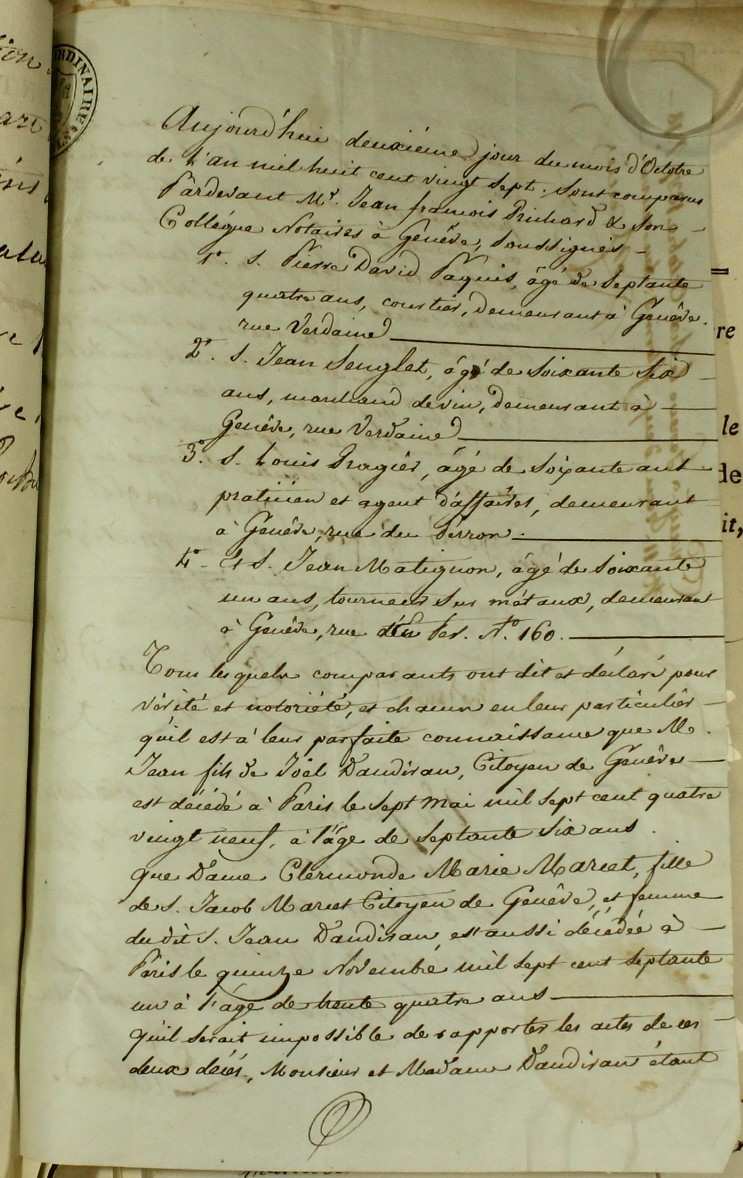 Aujourd'hui deuxième jour du mois d'Octobre
de l'an mil huit cent vingt sept, sont comparus
Pardevant Mr. Jean françois Richard & son
Collègue Notaires à Genève, soussignés
1°. S. Pierre David Paquis, âgé de septante
quatre ans, courtier, demeurant à Genève.
rue Verdaine
2°. S. Jean Senglet, âgé de soixante six
ans, marchand de vin, demeurant à
Genève, rue Verdaine
3°. S. Louis Pragier, âgé de soixante ans
praticien et agent d'affaires, demeurant
à Genève, rue du Perron.
4°. & S. Jean Matignon, âgé de soixante
un ans, tourneur sur métaux, demeurant
à Genève, rue d'En Fer. N°. 160.
Tous lesquels comparants ont dit et déclaré pour
vérité et notoriété, et chacun en leur particulier
qu'il est à leur parfaite connaissance que M.
Jean fils de Joël Dandiran, Citoyen de Genève
est décédé à Paris le sept mai mil sept cent quatre
vingt neuf, à l'âge de septante six ans.
que Dame Clermonde Marie Marcet, fille
de S. Jacob Marcet Citoyen de Genève, et femme
du dit S. Jean Dandiran, est aussi décédée à
Paris le quinze Novembre mil sept cent septante
un à l'âge de trente quatre ans
qu'il serait impossible de rapporter les actes de ces
deux décès, Monsieur et Madame Dandiran étant